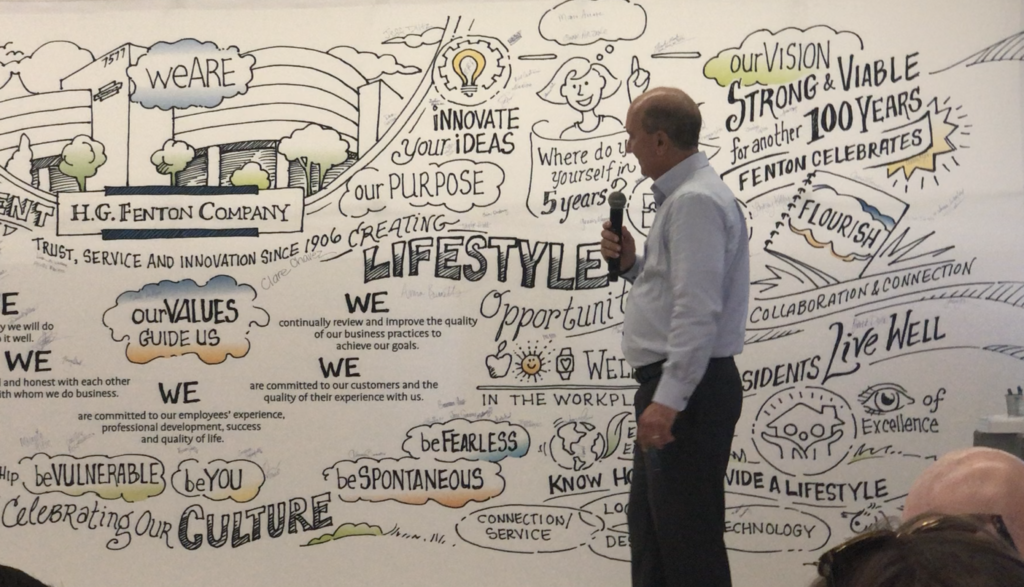 7577
weARE
H.G. FENTON COMPANY
ENT
TRUST, SERVICE AND INNOVATION SINCE 1906
INNOVATE
your iDEAS
our PURPOSE
CREATING
LIFESTYLE
Opportunit
Where do y
yourself in
5 years?
ourVISION
STRONG & VIABLE
for another 100 YEARS
FENTON CELEBRATES
FLOURISH
COLLABORATION & CONNECTION
Clare
ourVALUES
GUIDE US
E
y we will do
it well.
WE
and honest with each other
ith whom we do business.
WE
continually review and improve the quality
of our business practices to
achieve our goals.
WE
are committed to our customers and the
quality of their experience with us.
WE
are committed to our employees' experience,
professional development, success
and quality of life.
WEL
IN THE WORKPL
SIDENTS Live WELL
EYE of
Excellence
HIP
beVULNERABLE
beYOU
beFEARLESS
beSPONTANEOUS
Celebrating OUR CULTURE
KNOW HO
VIDE A LIFESTYLE
CONNECTION/
SERVICE
LO
DE
ECHNOLOGY